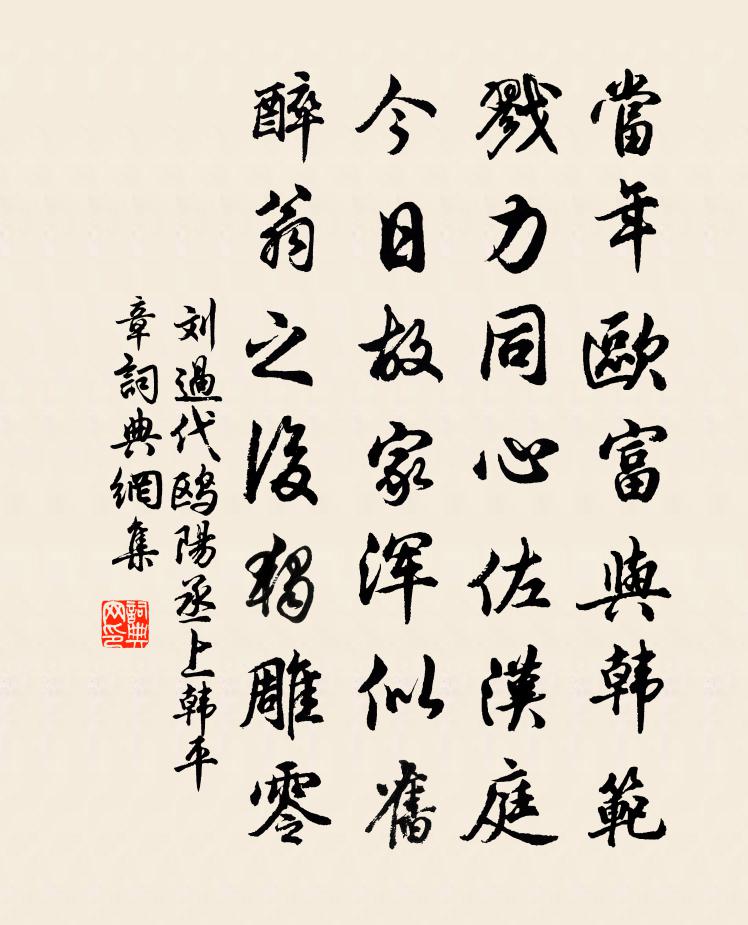 當年歐富與韩範
戮力同心佐漢庭
今日故家渾似舊
醉翁之後獨雕零
刘過代鸥陽丞上韩平
章詞典網集
詞典网印